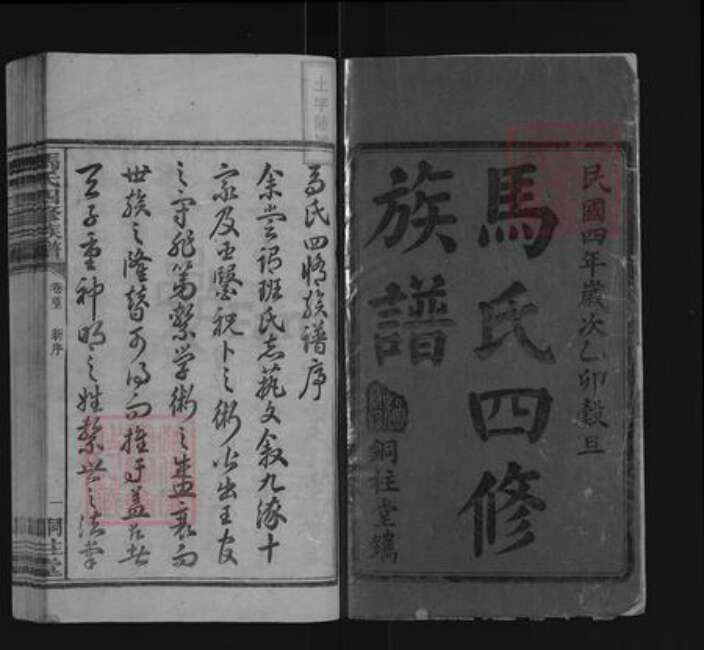 民國四年歲次乙卯穀旦
馬氏四修
族譜
銅柱堂鐫
馬氏四脩族譜序
余嘗謂班氏志藝文敘九流十
家及巫醫祝卜之術必出王官
之守非第繫學術之盛衰而
世族之隆替可得而推焉蓋昔
天子重神明之姓繫世之法掌
馬氏四修族譜
卷首 新序
一
銅柱堂